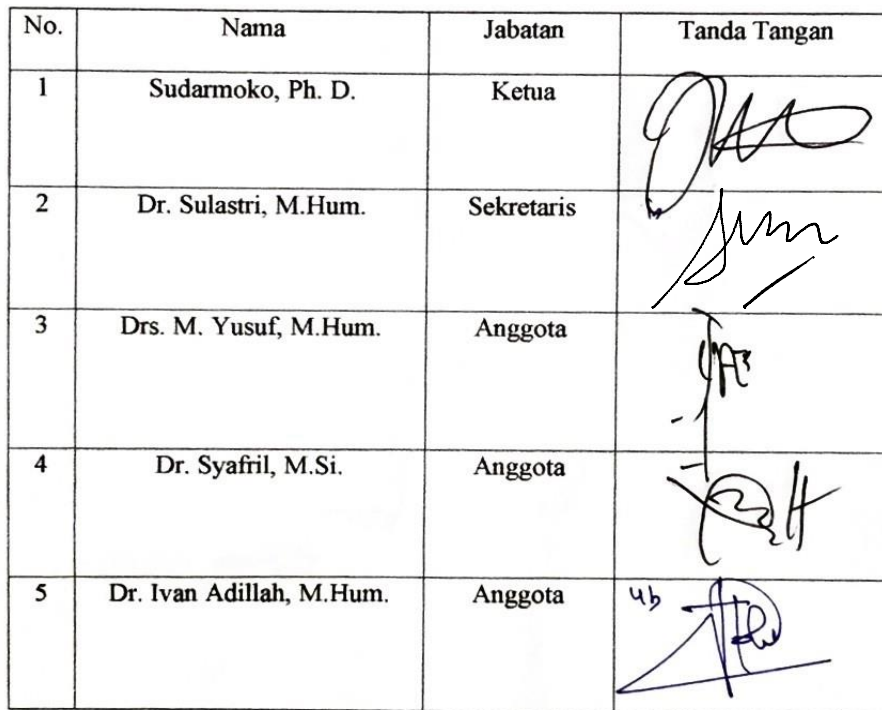 No. Nama Jabatan Tanda Tangan
1 Sudarmoko, Ph. D. Ketua
2 Dr. Sulastri, M.Hum. Sekretaris
3 Drs. M. Yusuf, M.Hum. Anggota
4 Dr. Syafril, M.Si. Anggota
5 Dr. Ivan Adillah, M.Hum. Anggota